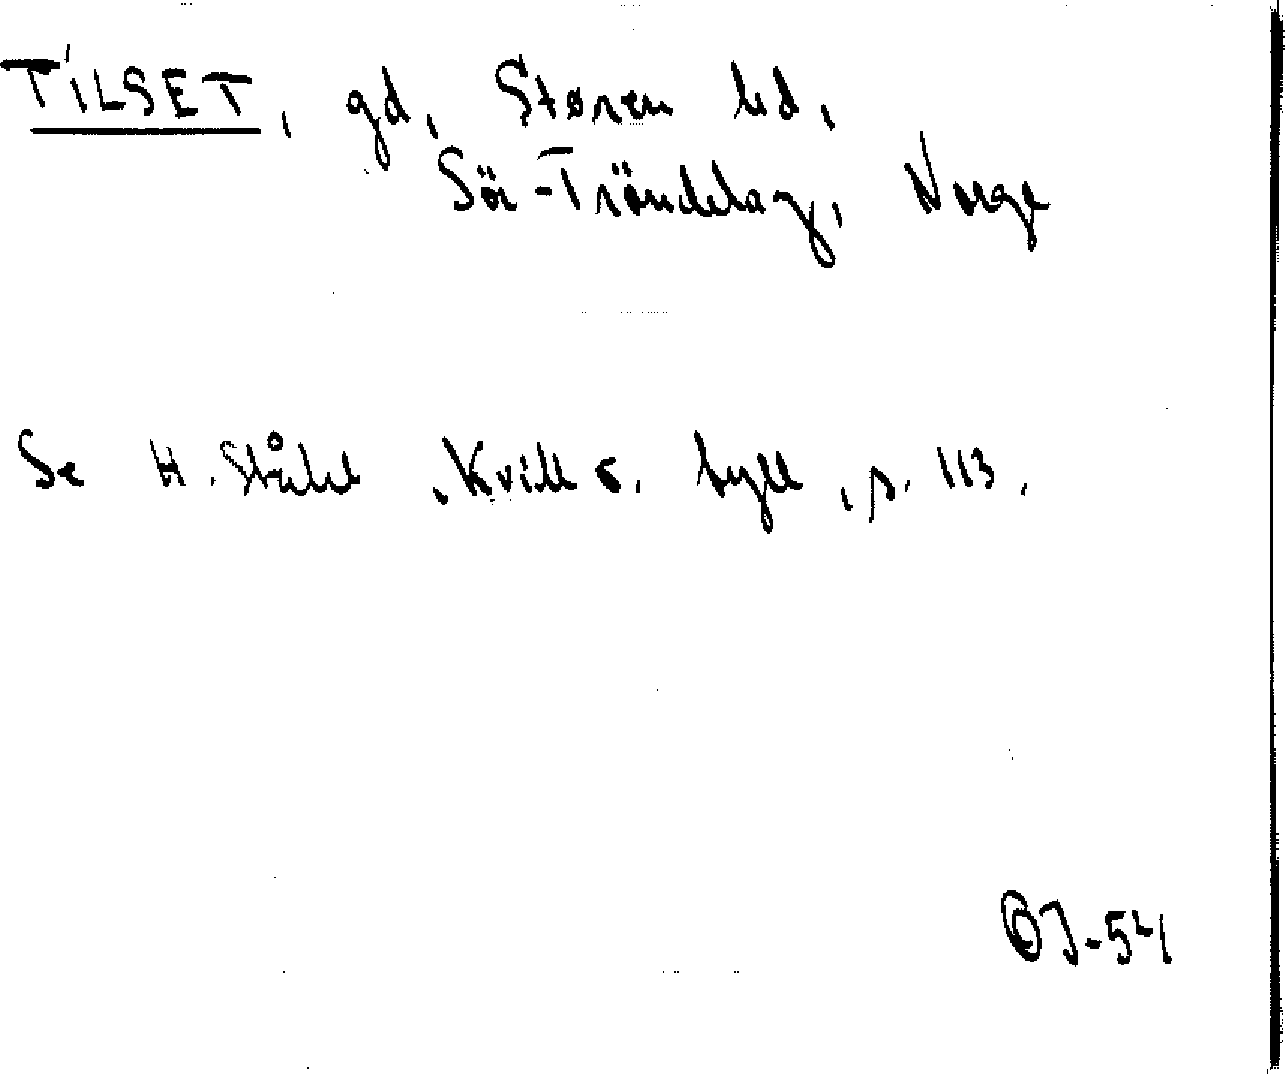 TILSET, gd, Støren hd,
Sör-Tröndelag, Norge
Se H. Ståhl, Kvill o. tyll, s. 113.
OJ-54